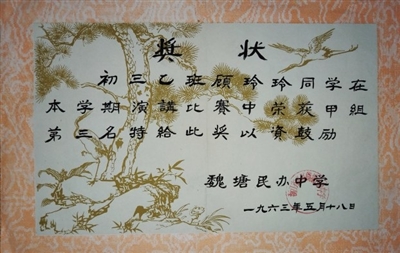 奬 状
初三乙班顾玲玲同学在
本学期演講比赛中荣获甲组
第三名特给此奖以资鼓励
魏塘民办中学
一九六三年五月十八日